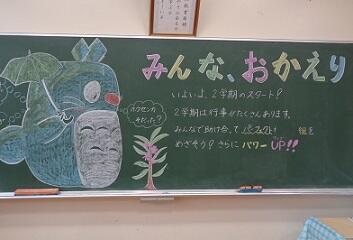 みんな、おかえり
いよいよ、2学期のスタート!
2学期は行事がたくさんあります。
みんなで助け合って
組を
めざそう! さらに パワーUP!!
ホウセンカ
そだった?